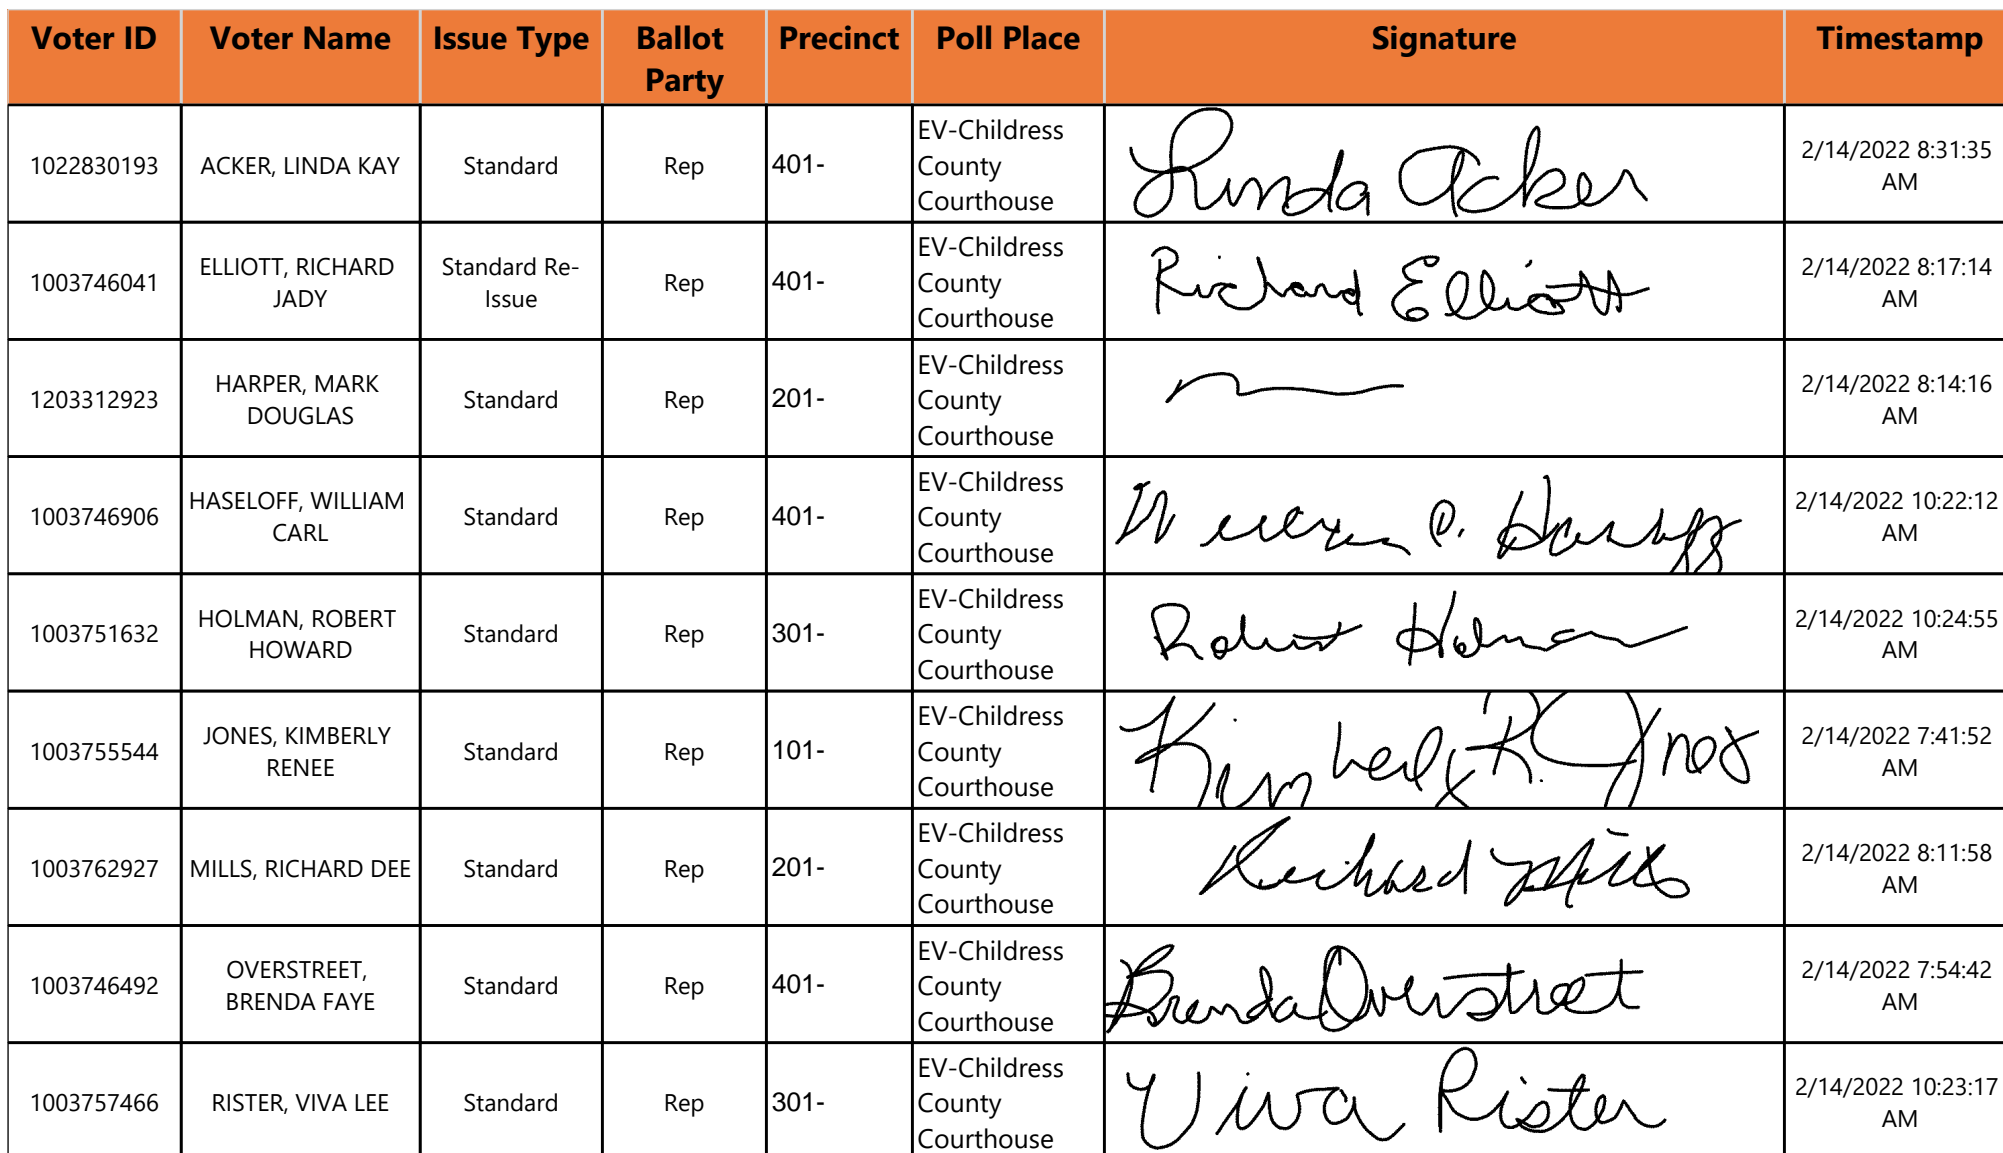 Voter ID Voter Name Issue Type Ballot Party Precinct Poll Place Signature Timestamp
1022830193 ACKER, LINDA KAY Standard Rep 401- EV-Childress County Courthouse Linda Acker 2/14/2022 8:31:35 AM
1003746041 ELLIOTT, RICHARD JADY Standard Re-Issue Rep 401- EV-Childress County Courthouse Richard Elliott 2/14/2022 8:17:14 AM
1203312923 HARPER, MARK DOUGLAS Standard Rep 201- EV-Childress County Courthouse 2/14/2022 8:14:16 AM
1003746906 HASELOFF, WILLIAM CARL Standard Rep 401- EV-Childress County Courthouse William C. Haseloff 2/14/2022 10:22:12 AM
1003751632 HOLMAN, ROBERT HOWARD Standard Rep 301- EV-Childress County Courthouse Robert Holman 2/14/2022 10:24:55 AM
1003755544 JONES, KIMBERLY RENEE Standard Rep 101- EV-Childress County Courthouse Kimberly R. Jones 2/14/2022 7:41:52 AM
1003762927 MILLS, RICHARD DEE Standard Rep 201- EV-Childress County Courthouse Richard Mills 2/14/2022 8:11:58 AM
1003746492 OVERSTREET, BRENDA FAYE Standard Rep 401- EV-Childress County Courthouse Brenda Overstreet 2/14/2022 7:54:42 AM
1003757466 RISTER, VIVA LEE Standard Rep 301- EV-Childress County Courthouse Viva Rister 2/14/2022 10:23:17 AM